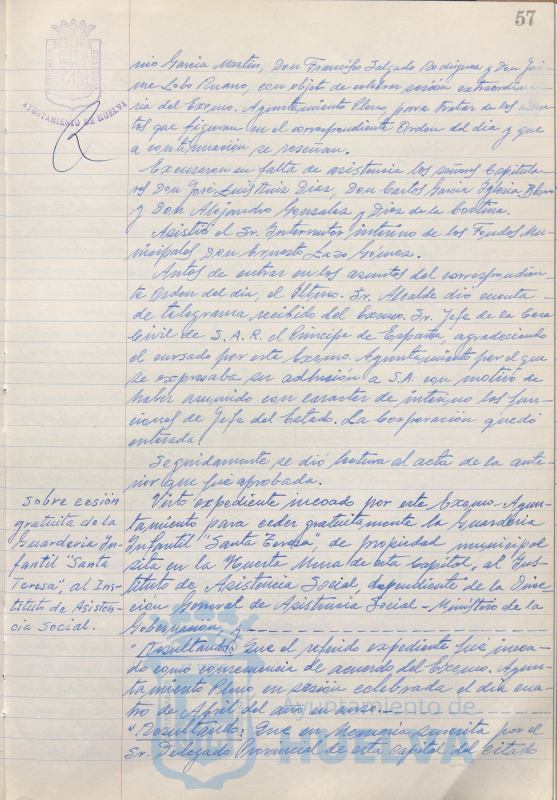 57
AYUNTAMIENTO DE HUELVA
nio Garcia Martin, Don Francisco Salgado Rodriguez y Don Jai-
me Lobo Ruano, con objeto de celebrar sesión extraordina-
ria del Excmo. Ayuntamiento Pleno, para tratar de los asun-
tos que figuran en el correspondiente Orden del dia y que
a continuación se reseñan.
Excusaron su falta de asistencia los señores Capitula-
res Don José Luis Ruiz Diaz, Don Carlos Garcia Iglesia
y Don Alejandro Gonzalez y Diez de la Cortina.
Asistió el Sr. Interventor interino de los Fondos Mu-
nicipales Don Ernesto Lazo Gómez.
Antes de entrar en los asuntos del correspondien-
te Orden del dia, el Iltmo. Sr. Alcalde dió cuenta
de telegrama recibido del Excmo. Sr. Jefe de la Casa
Civil de S.A.R. el Principe de España, agradeciendo
el cursado por este Excmo. Ayuntamiento por el que
se expresaba su adhesión a S.A. con motivo de
haber asumido con caracter de interino las fun-
ciones de Jefe del Estado. La Corporación quedó
enterada.
Seguidamente se dió lectura al acta de la ante-
rior que fué aprobada.
Sobre cesión
gratuita de la
Guarderia In-
fantil "Santa
Teresa", al Ins-
tituto de Asisten-
cia Social.
Visto expediente incoado por este Excmo. Ayun-
tamiento para ceder gratuitamente la Guarderia
Infantil "Santa Teresa", de propiedad municipal
sita en la Huerta Mena de esta Capital, al Ins-
tituto de Asistencia Social, dependiente de la Direc-
cion General de Asistencia Social - Ministerio de la
Gobernación, y
"Resultando: Que el referido expediente fué incoa-
do como consecuencia de acuerdo del Excmo. Ayun-
tamiento Pleno, en sesión celebrada el dia cua-
tro de Abril del año en curso.
"Resultando: Que en Memoria suscrita por el
Sr. Delegado Provincial de esta Capital del citado
Ayuntamiento de
HUELVA